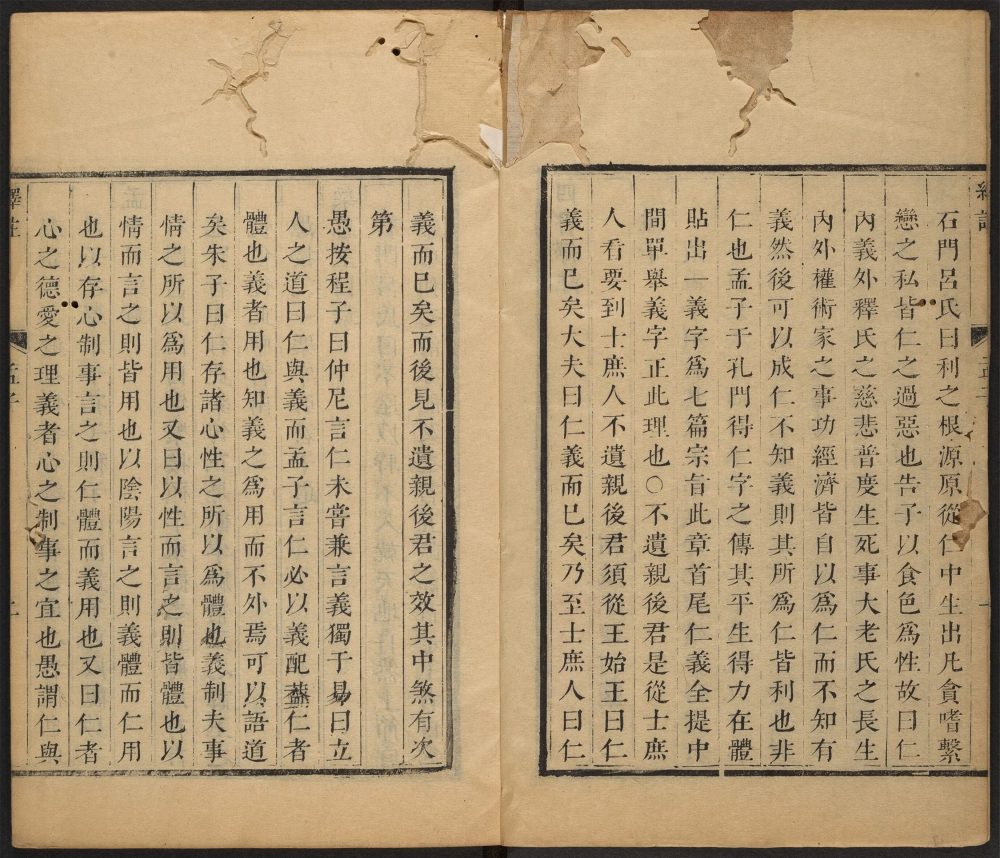 石門呂氏曰利之根源原從仁中生出凡貪嗜繫
戀之私皆仁之過惡也告子以食色爲性故曰仁
內義外釋氏之慈悲普度生死事大老氏之長生
內外權術家之事功經濟皆自以爲仁而不知有
義然後可以成仁不知義則其所爲仁皆利也非
仁也孟子于孔門得仁字之傳其平生得力在體
貼出一義字爲七篇宗旨此章首尾仁義全提中
間單舉義字正此理也○不遺親後君是從士庶
人看要到士庶人不遺親後君須從王始王曰仁
義而巳矣大夫曰仁義而巳矣乃至士庶人曰仁
義而巳矣而後見不遺親後君之效其中煞有次
第
愚按程子曰仲尼言仁未甞兼言義獨于易曰立
人之道曰仁與義而孟子言仁必以義配蓋仁者
體也義者用也知義之爲用而不外焉可以語道
矣朱子曰仁存諸心性之所以爲體也義制夫事
情之所以爲用也又曰以性而言之則皆體也以
情而言之則皆用也以陰陽言之則義體而仁用
也以存心制事言之則仁體而義用也又曰仁者
心之德愛之理義者心之制事之宜也愚謂仁與
孟子
二